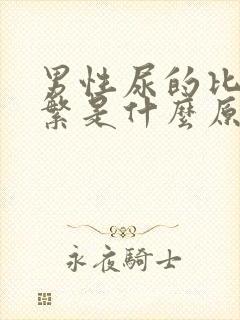 男性尿的比
繁是什麼原
永夜騎士